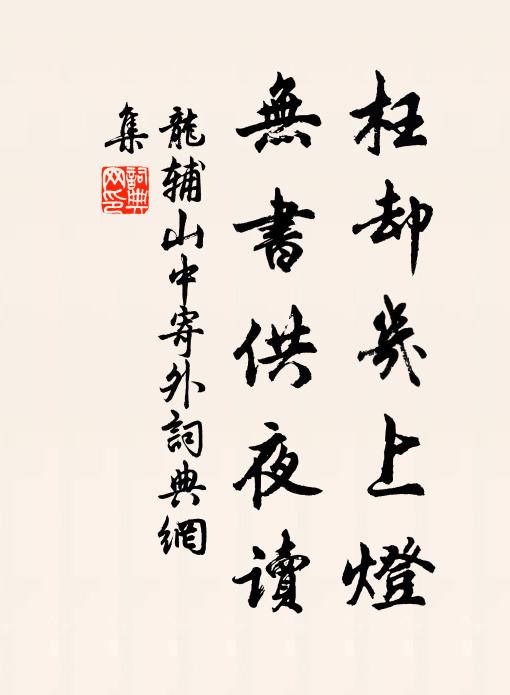 枉却几上燈
無書供夜读
龍辅山中寄外詞典網
集
詞典
网印